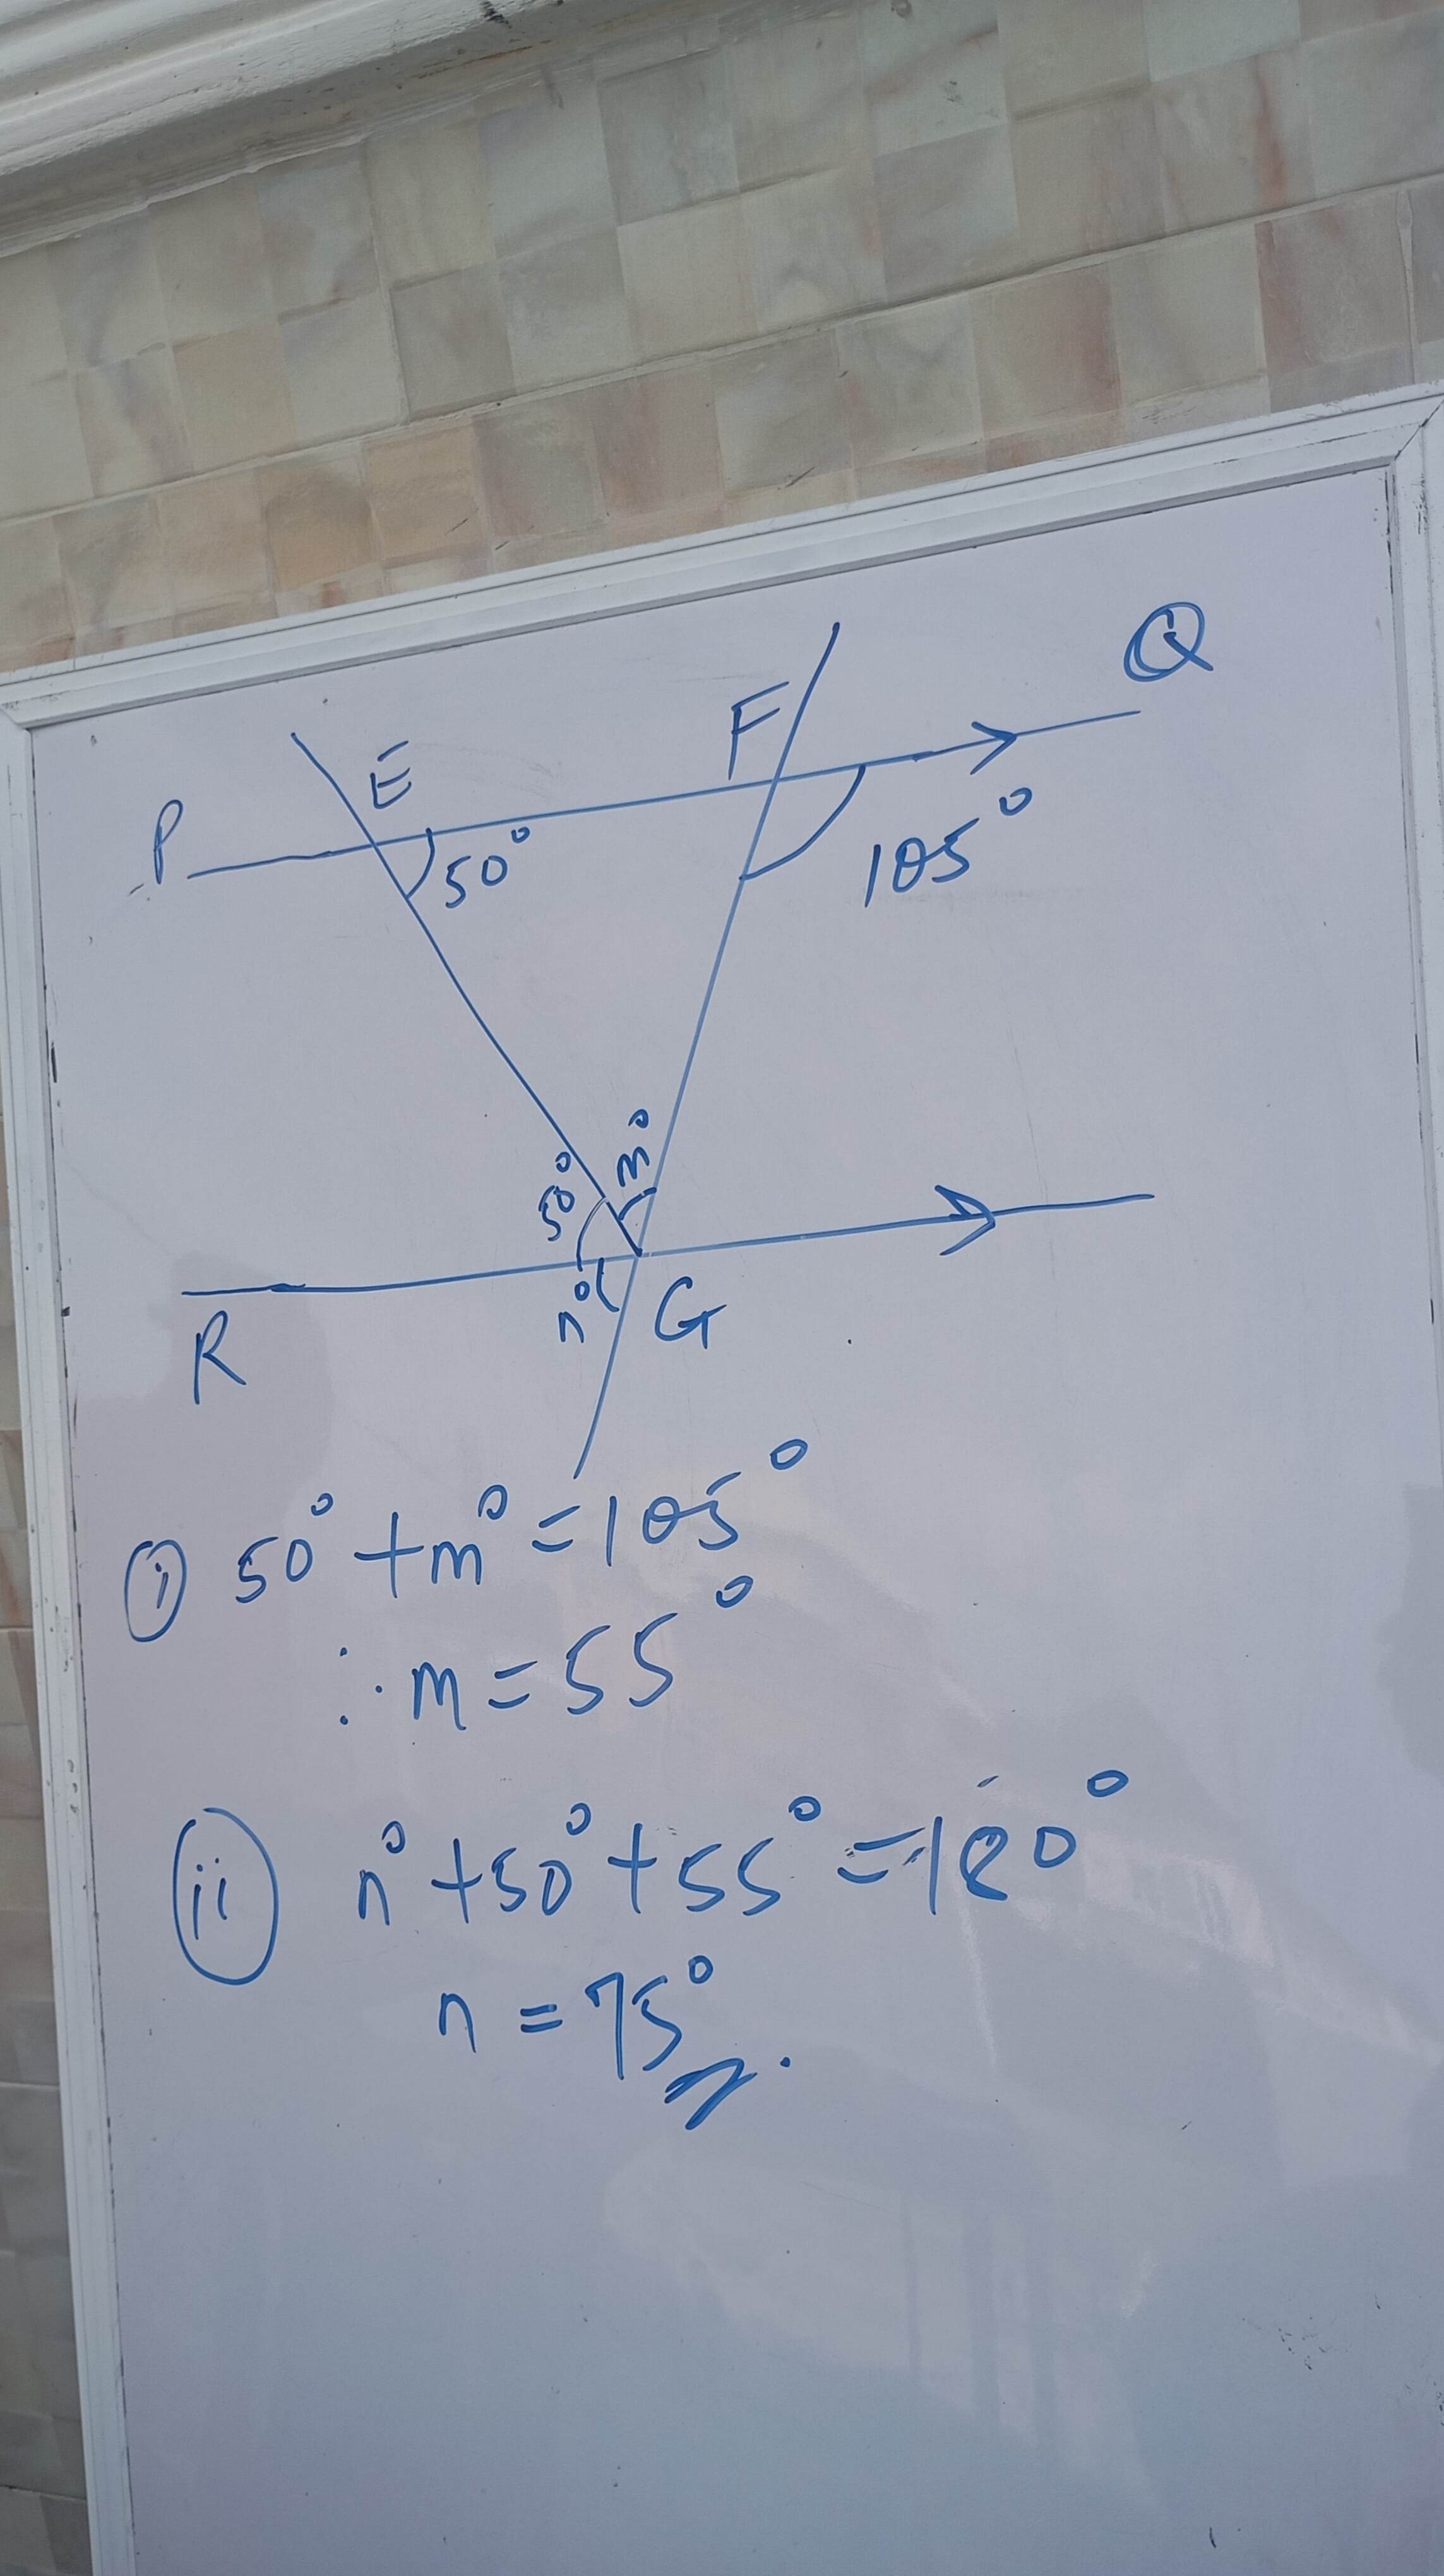 Q
F
E
P
50°
105°
m°
50°
n°
G
R
(i) 50° + m° = 105°
∴ m = 55°
(ii) n° + 50° + 55° = 180°
n = 75°